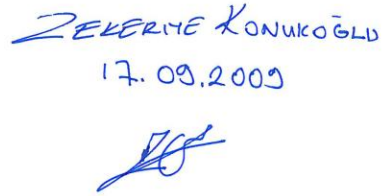 ZEKERIYE KONUKOĞLU
17.09.2009